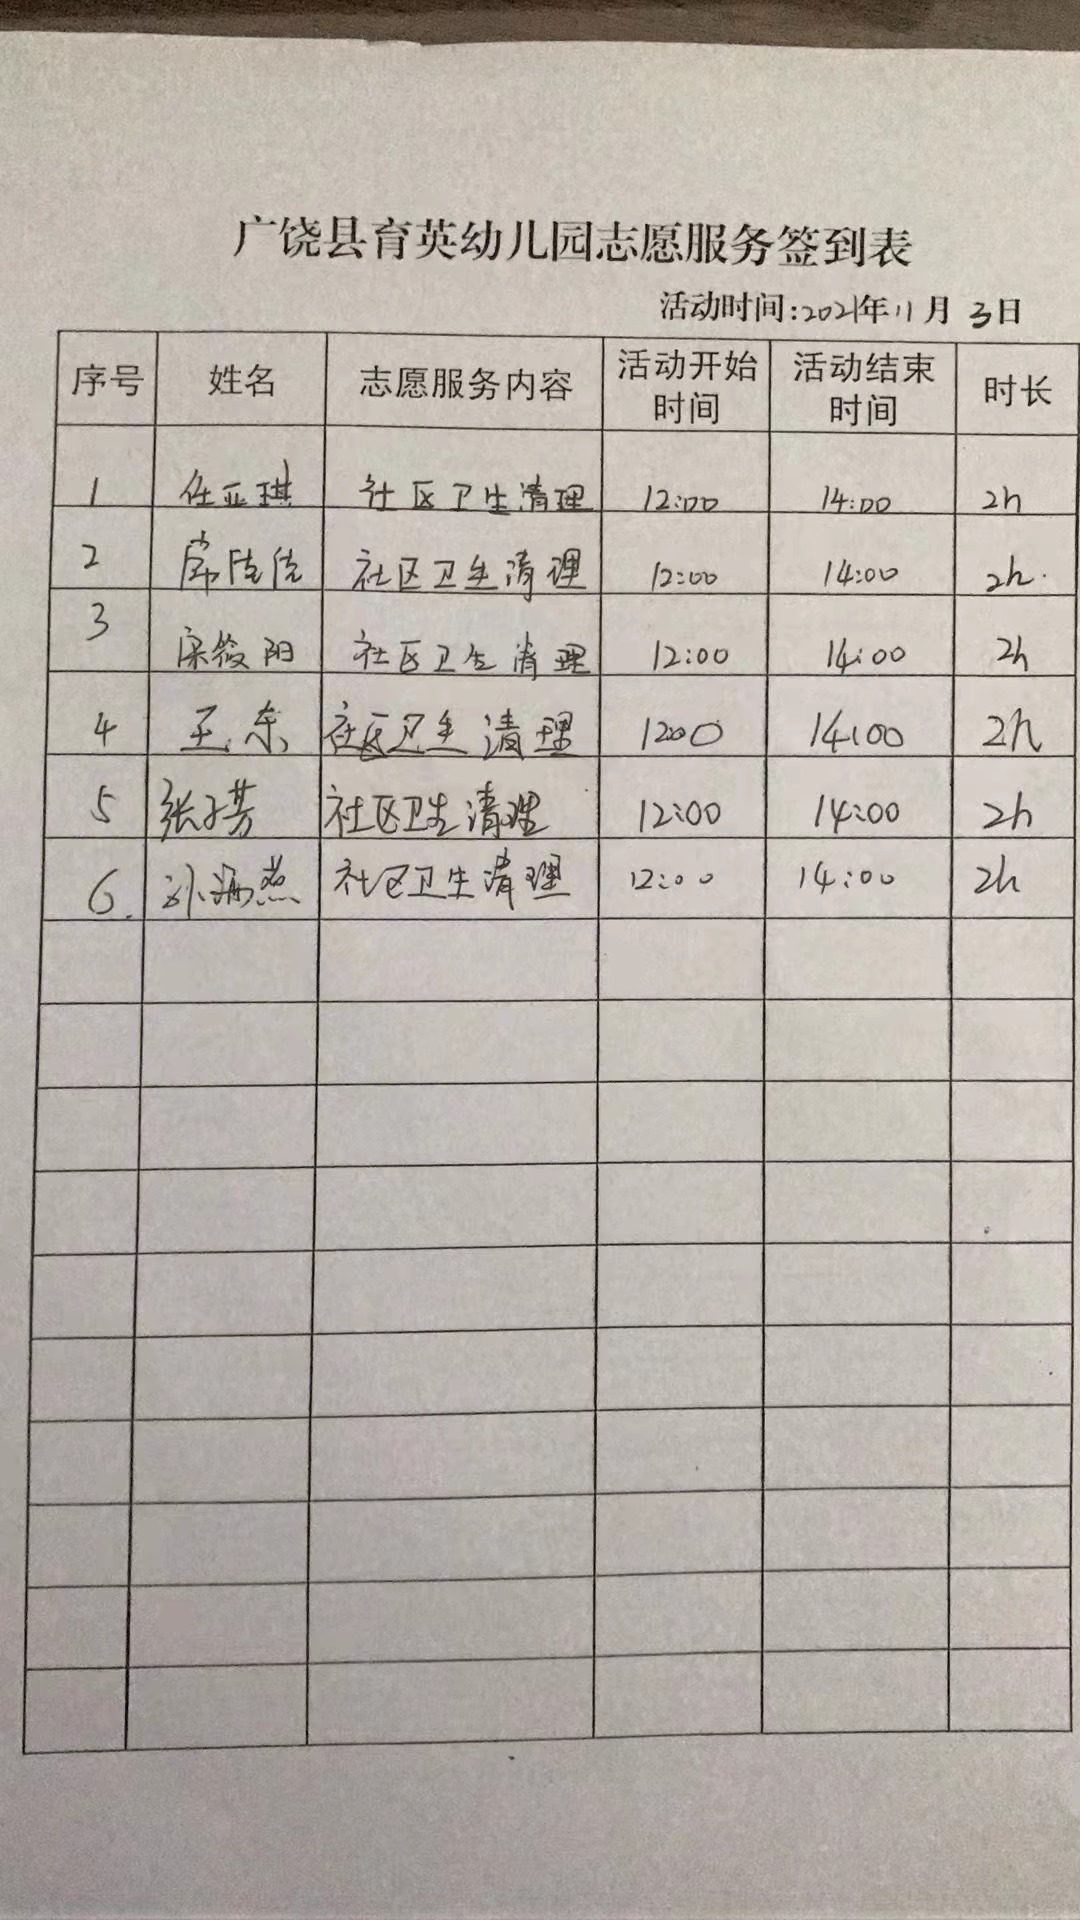 广饶县育英幼儿园志愿服务签到表
活动时间:2021年11月3日
序号 姓名 志愿服务内容 活动开始时间 活动结束时间 时长
1 任亚琪 社区卫生清理 12:00 14:00 2h
2 社区卫生清理 12:00 14:00 2h.
3 宋筱阳 社区卫生清理 12:00 14:00 2h
4 王东 社区卫生清理 12:00 14:00 2h
5 张子芳 社区卫生清理 12:00 14:00 2h
6. 孙海燕 社区卫生清理 12:00 14:00 2h